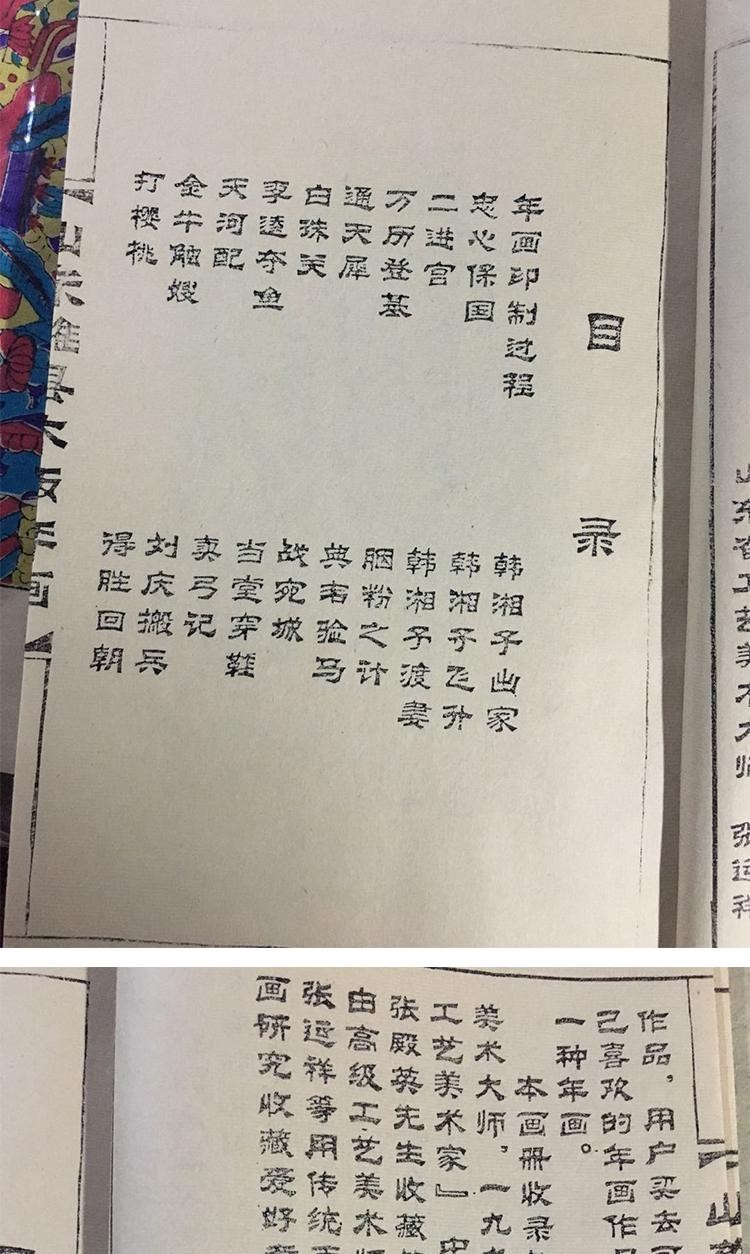 目录
年画印制过程
忠心保国
二进宫
万历登基
通天犀
白珠关
李逵夺鱼
天河配
金牛触嫂
打樱桃
韩湘子出家
韩湘子飞升
韩湘子渡妻
胭粉之计
典韦验马
战宛城
当堂穿鞋
卖弓记
刘庆搬兵
得胜回朝
作品，用户买去
己喜欢的年画作
一种年画。
本画册收录
美术大师，一九
工艺美术家』
张殿英先生收藏
由高级工艺美术师
张运祥等用传统
画研究收藏爱好